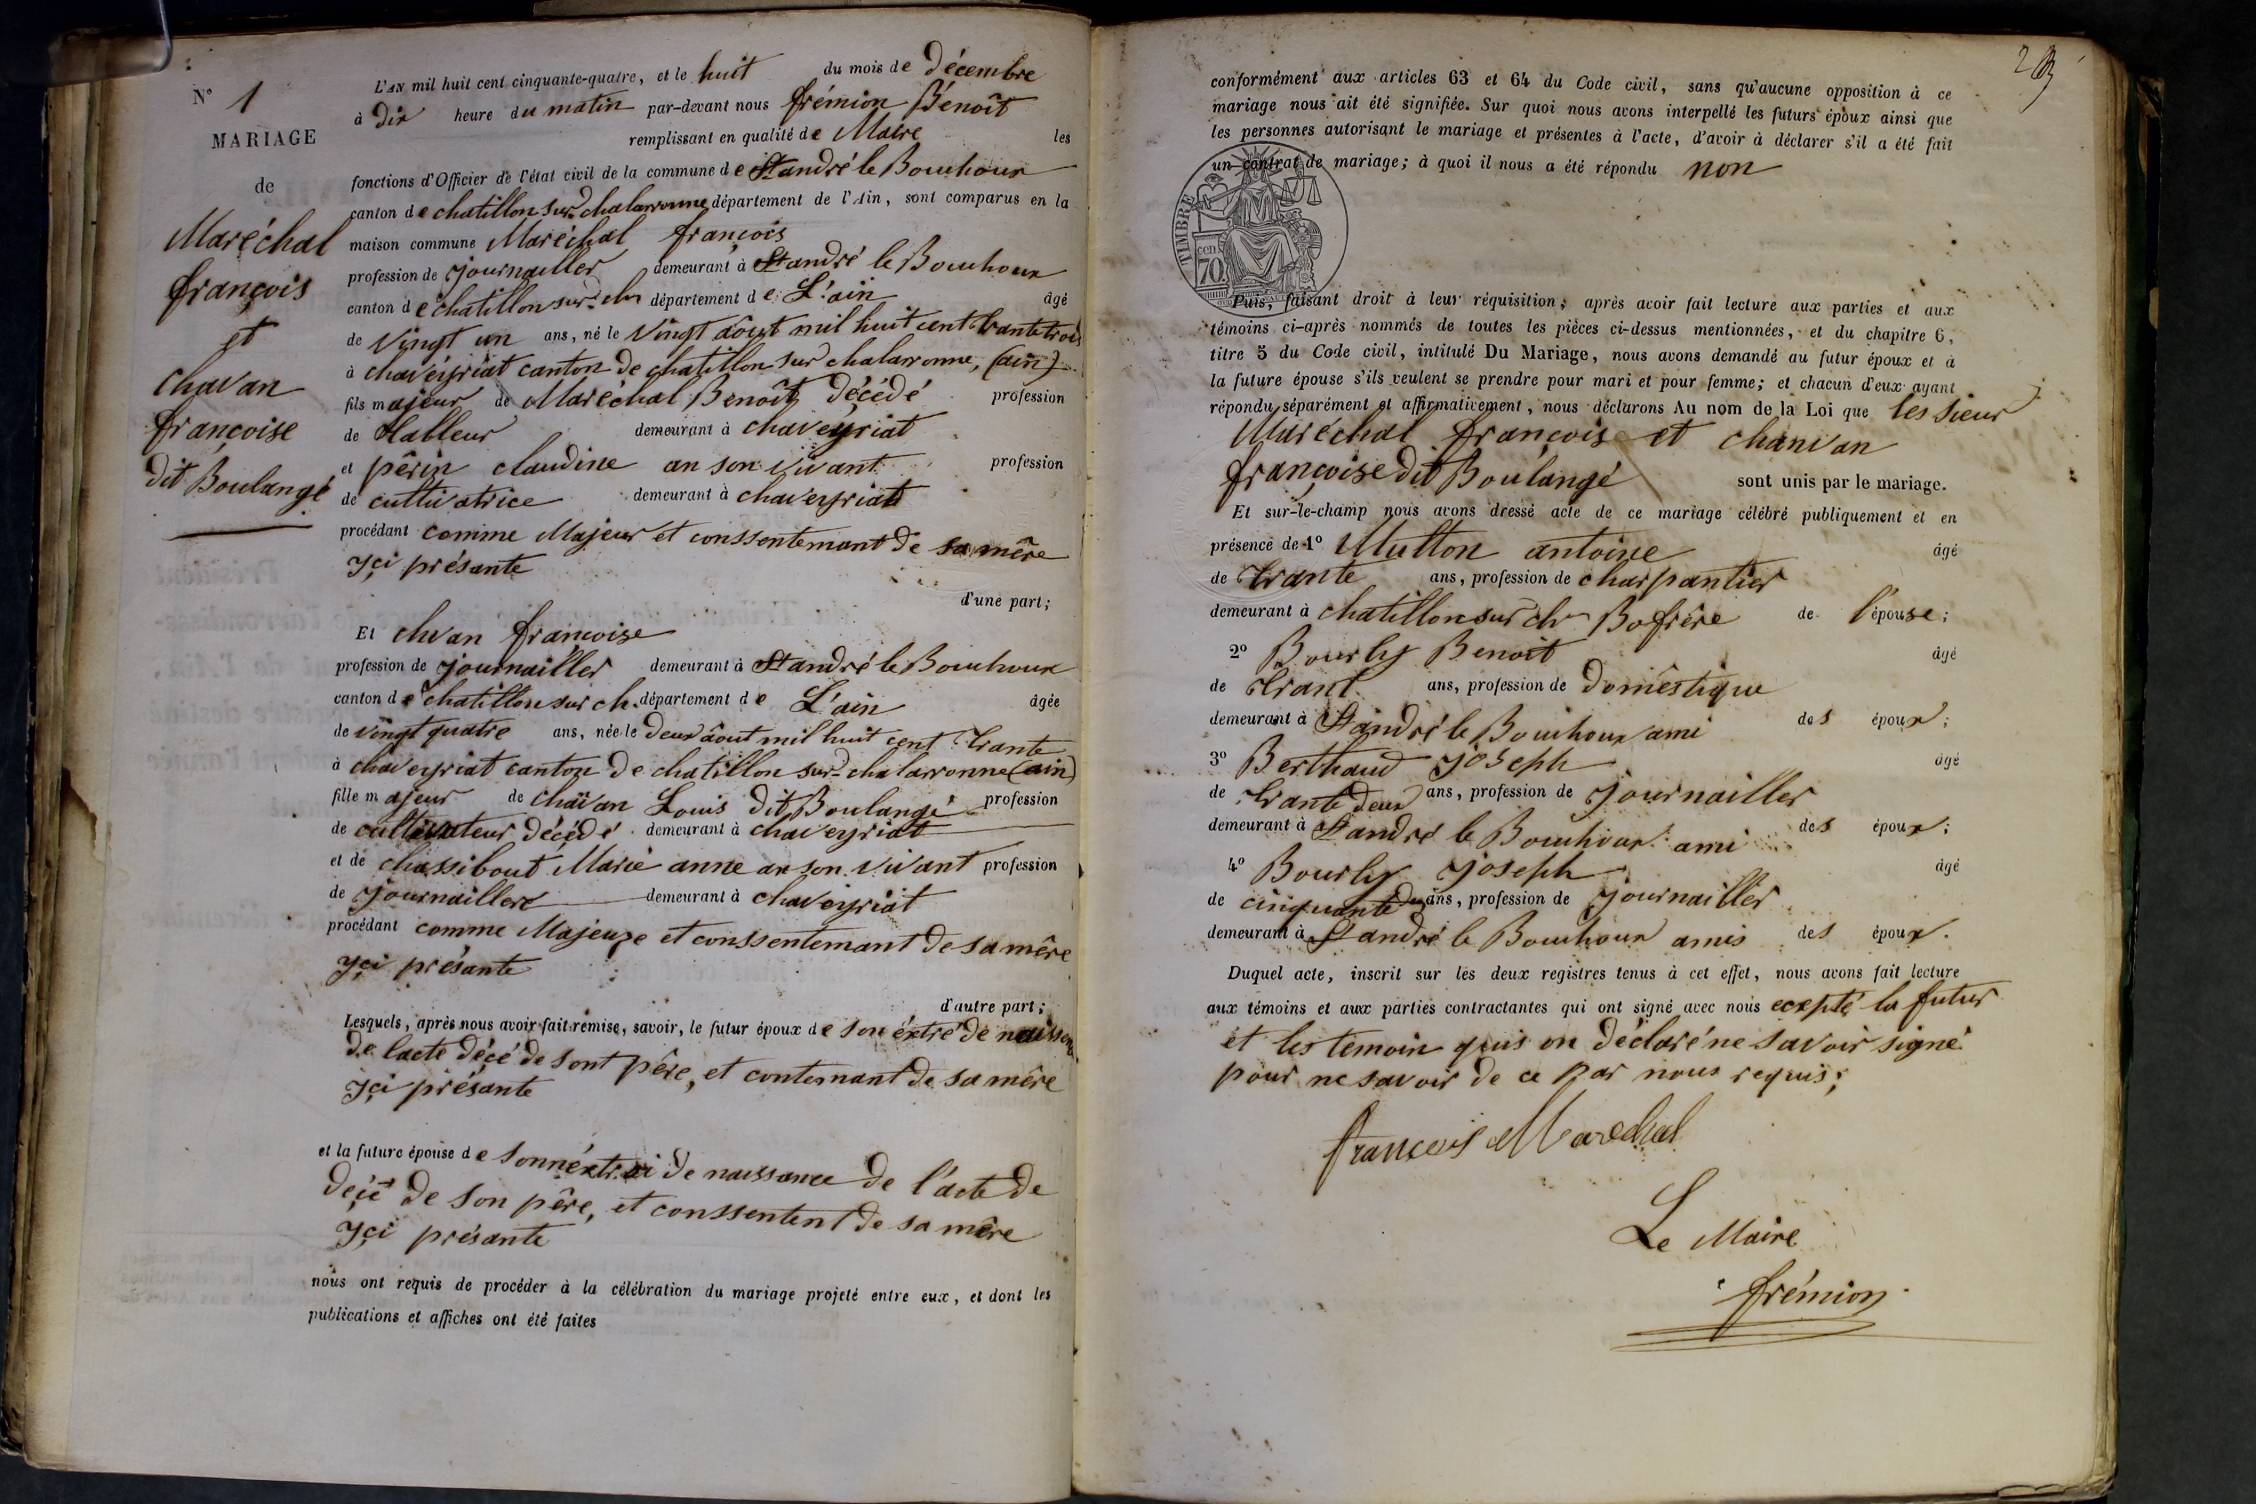 N° 1
MARIAGE
de
Maréchal
françois
et
chavan
françoise
dit Boulangé
L'AN mil huit cent cinquante-quatre, et le huit du mois de Décembre
à Dix heure du matin par-devant nous frémion Bénoît
remplissant en qualité de Maire les
fonctions d'Officier de l'état civil de la commune de St andré le Bouchoux
canton de chatillon sur chalaronne département de l'Ain, sont comparus en la
maison commune Maréchal françois
profession de journailler demeurant à St andré le Bouchoux
canton de chatillon sur chr département de L'ain âgé
de vingt un ans, né le vingt août mil huit cent trante trois
à chavéyriat canton de chatillon sur chalaronne, (ain)
fils majeur de Maréchal Benoît décédé profession
de Hableur demeurant à chaveyriat
et pêrin claudine an son vivant profession
de cultivatrice demeurant à chaveyriat
procédant comme Majeur et conssentemant de sa mêre
yçi présante
d'une part;
Et chvan françoise
profession de journailler demeurant à St andré le Bouchoux
canton de chatillon sur ch. département de L'ain âgée
de vingt quatre ans, née le deux août mil huit cent trante
à chaveyriat canton de chatillon sur chalarronne (ain)
fille majeur de chavan Louis dit Boulangé profession
de cultivateur décédé demeurant à chaveyriat
et de chassibout Marie anne an son vivant profession
de journaillere demeurant à chaveyriat
procédant comme Majeuze et conssentemant de sa mêre
yçi présante
d'autre part;
Lesquels, après nous avoir fait remise, savoir, le futur époux de son éxtré de naissance
de lacte déçé de sont pêre, et contemant de sa mêre
yçi présante
et la future épouse de sonnéxtrai de naissance de l'acte de
deçé de son pêre, et conssentent de sa mêre
yçi présante
nous ont requis de procéder à la célébration du mariage projeté entre eux, et dont les
publications et affiches ont été faites
conformément aux articles 63 et 64 du Code civil, sans qu'aucune opposition à ce
mariage nous ait été signifiée. Sur quoi nous avons interpellé les futurs époux ainsi que
les personnes autorisant le mariage et présentes à l'acte, d'avoir à déclarer s'il a été fait
un contrat de mariage; à quoi il nous a été répondu non
TIMBRE
cen
70
Puis, faisant droit à leur réquisition, après avoir fait lecture aux parties et aux
témoins ci-après nommés de toutes les pièces ci-dessus mentionnées, et du chapitre 6,
titre 5 du Code civil, intitulé Du Mariage, nous avons demandé au futur époux et à
la future épouse s'ils veulent se prendre pour mari et pour femme; et chacun d'eux ayant
répondu séparément et affirmativement, nous déclarons Au nom de la Loi que les sieur
Maréchal françois et chanvan
françoise dit Boulangé sont unis par le mariage.
Et sur-le-champ nous avons dressé acte de ce mariage célébré publiquement et en
présence de 1° Mutton antoine âgé
de trante ans, profession de charpantier
demeurant à chatillon sur chr Bofrêre de l'épouse;
2° Bourly Benoit âgé
de trant ans, profession de Domestique
demeurant à St andré le Bouchoux ami des époux;
3° Berthaud joseph âgé
de trante deux ans, profession de journailler
demeurant à St andré le Bouchoux ami des époux;
4° Bourly joseph âgé
de cinquante ans, profession de journailler
demeurant à St andré le Bouchoux amis des époux.
Duquel acte, inscrit sur les deux registres tenus à cet effet, nous avons fait lecture
aux témoins et aux parties contractantes qui ont signé avec nous ecxpté la futur
et les temoin quis on déclaré ne savoir signé
pour ne savoir de ce par nous requis;
francois Marechal
Le Maire
frémion